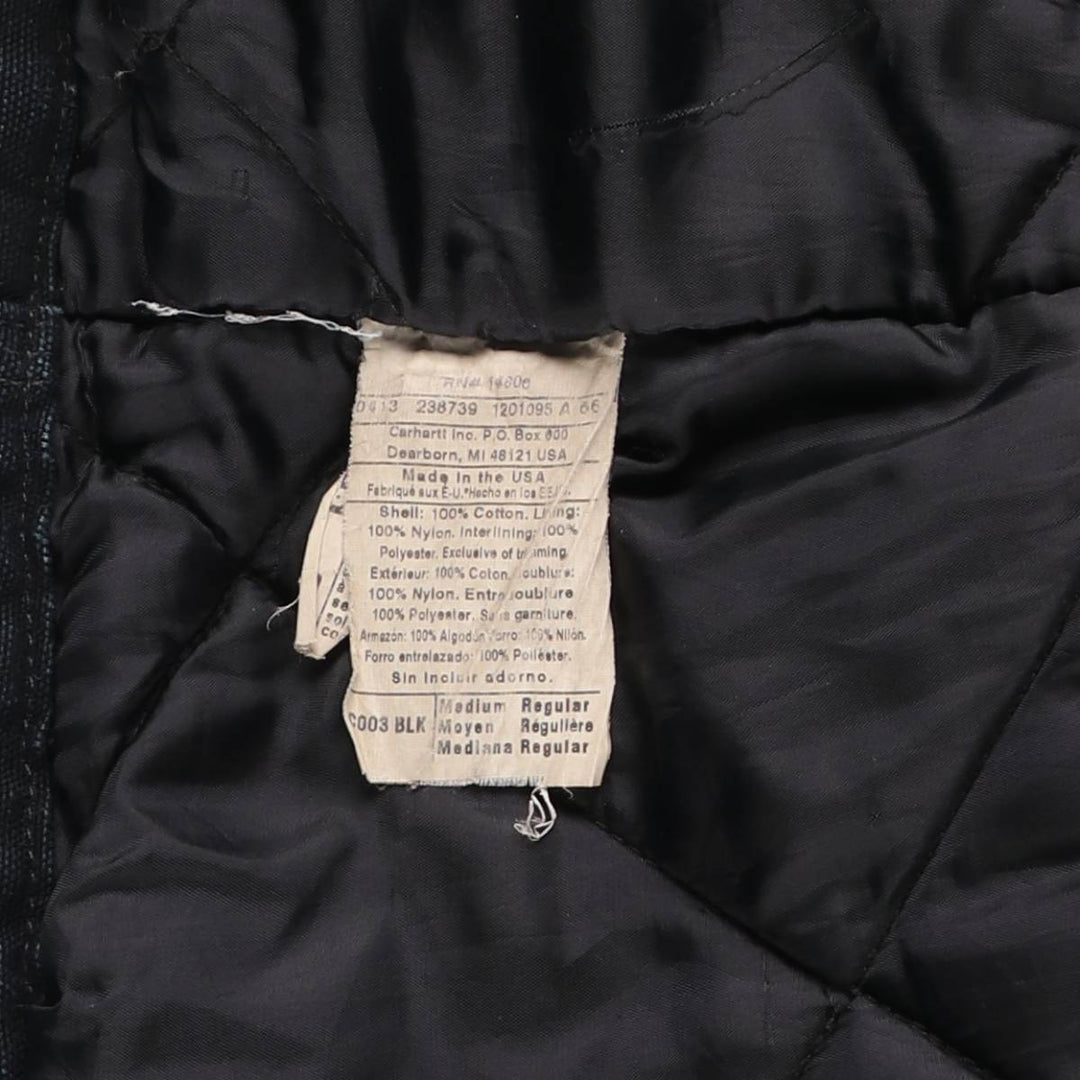 RN# 14806
0413 238739 1201095 A 66
Carhartt Inc. P.O. Box 600
Dearborn, MI 48121 USA
Made in the USA
Fabriqué aux É-U. Hecho en los
Shell: 100% Cotton. Lining:
100% Nylon. Interlining: 100%
Polyester. Exclusive of trimming
Extérieur: 100% Coton. Doublure:
100% Nylon. Entredoublure
100% Polyester. Sans garniture.
Armazón: 100% Algodón Forro: 100% Nilón.
Forro entrelazado: 100% Poliéster.
Sin incluir adorno.
C003 BLK
Medium Regular
Moyen Régulière
Mediana Regular